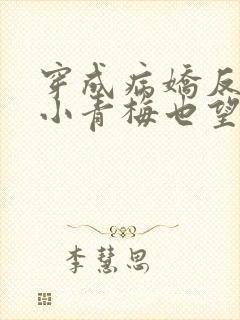 穿成病嬌反
小青梅也望
李慧思